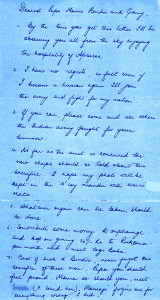 Dearest Papa, Mama, Birdie and Granny,
- By the time you get this letter I'll be
observing you all from the sky enjoying
the hospitality of Apsaras.
2. I have no regrets, in fact even if
I become a human again I'll join
the army and fight for my nation.
3. If you can, please come and see where
the Indian army fought for your
tomorrow.
4. As far as the unit is concerned the
new chaps should be told about this
sacrifice. I hope my photo will be
kept in the 'A' coy mandir with
5. Whatever organ can be taken, should
be done.
6. Contribute some money to orphanage
and keep on giving 50/- to
per month
7. Best of luck to Birdie, never forget this
sacrifice of these men. Papa you should
feel proud. Mama so should you, meet
(I loved her). Mamaji forgive me for
everything wrong I did.